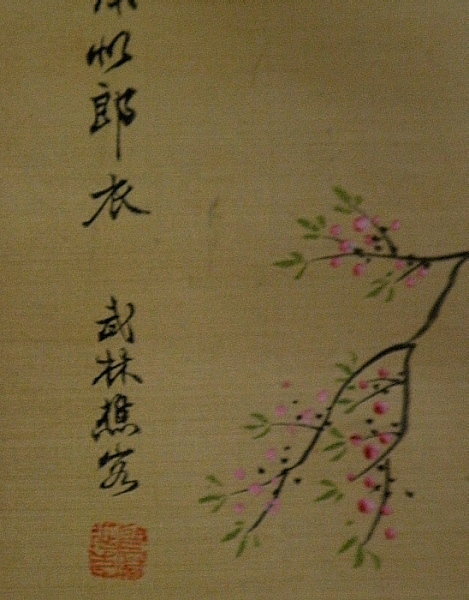 似郎衣 武林樵客